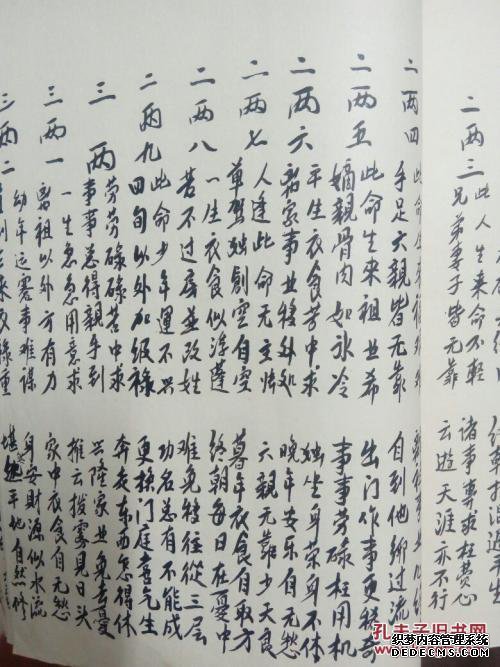 二两三
此人生来命不轻
諸事尋求枉费心
兄弟妻子皆无靠
云遊天涯亦不行
二两四
此命生来
手足六親皆无靠
自到他鄉过流
二两五
此命生来祖业希
出门作事更稀奇
嫡親骨肉如冰冷
事事劳碌枉用机
二两六
平生衣食劳中求
独坐身荣身不休
离家事业移外处
晚年安乐自无愁
二两七
人逢此命无主
六親无靠少天良
單驾独創空自空
暮年衣食自取方
二两八
一生衣食似浮蓬
終朝每日在憂中
苦不过房並改姓
难免特往從三层
二两九
此命少年運不兴
功名总有不能成
四旬以外加級禄
更换门庭喜气生
三两
劳劳碌碌苦中求
奔走东西怎得休
事事总得親手到
兴隆家业免去憂
三两一
一生急急用意求
推云拨雾见日头
离祖以外方有力
家中衣食自无愁
三两二
幼年运寒事难谋
身安财源似水流
平地自然修
孔夫子旧书网